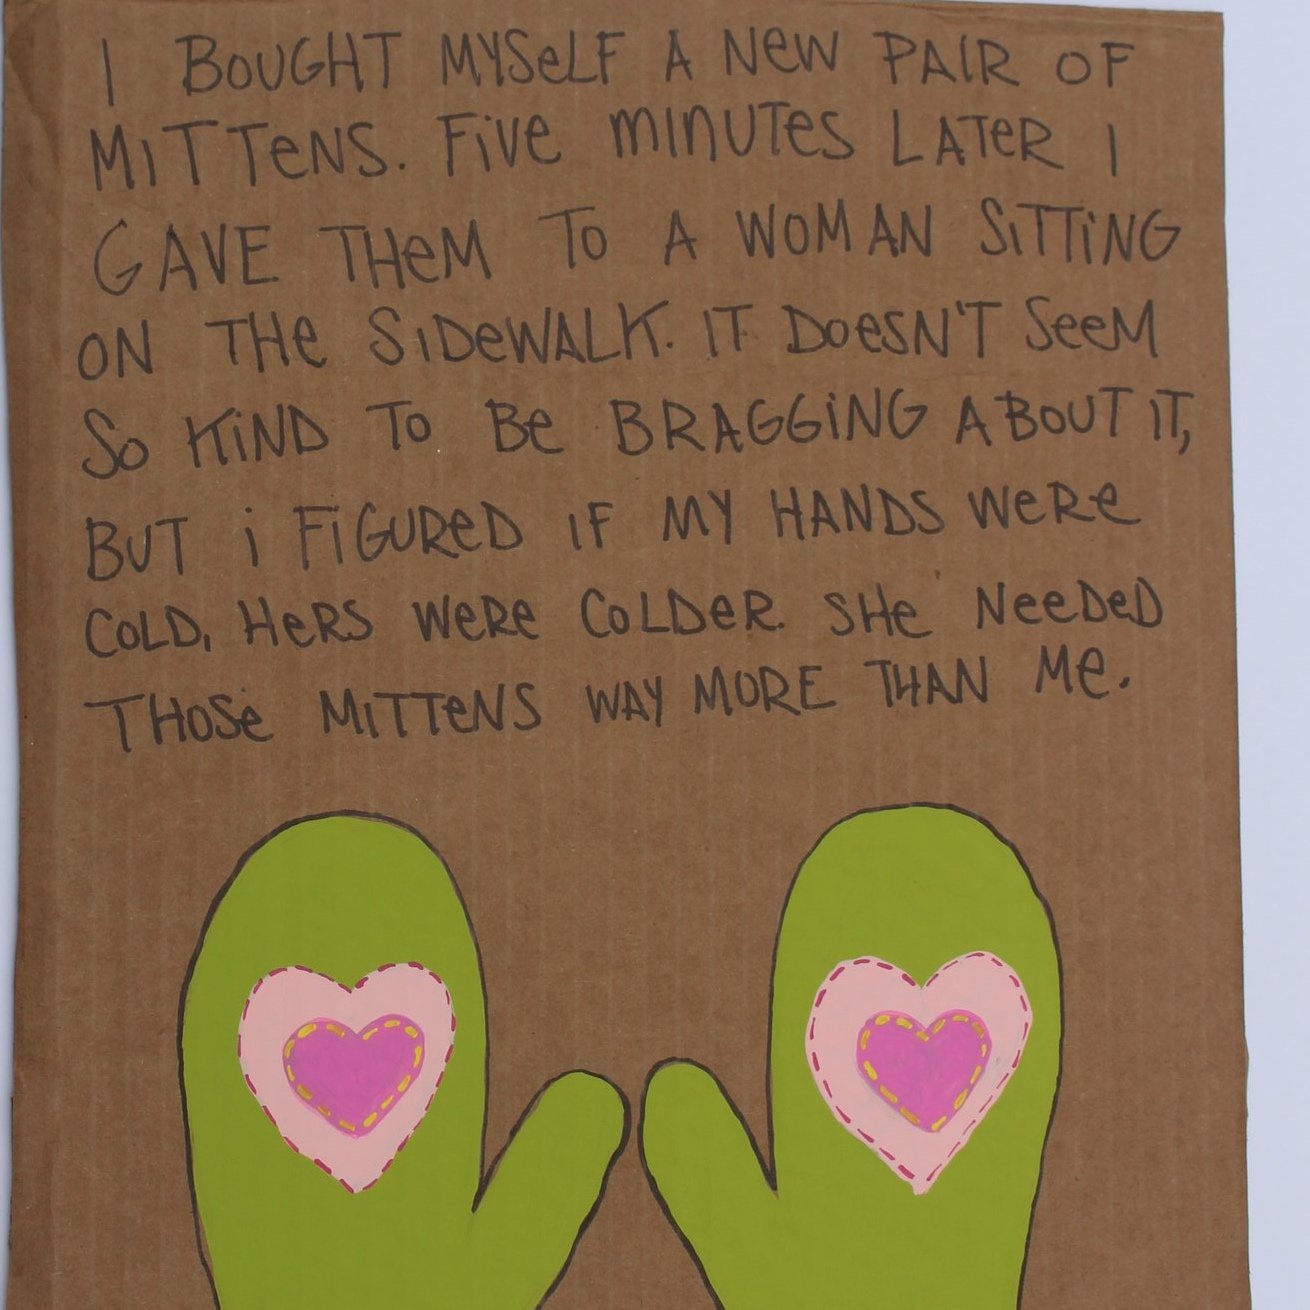 I BOUGHT MYSeLF A NeW PAIR OF
MiTTeNS. FiVe MINUTeS LATeR I
GAVE THeM To A WOMAN SiTTiNG
ON THe SiDeWALK. IT DoeSN'T SeeM
So KiND To Be BRAGGiNG ABOUT iT,
BUT i FiGUReD iF MY HANDS WeRe
CoLD, HeRS WeRe CoLDeR. SHe NeeDeD
THoSe MiTTeNS WAY MORE THAN Me.